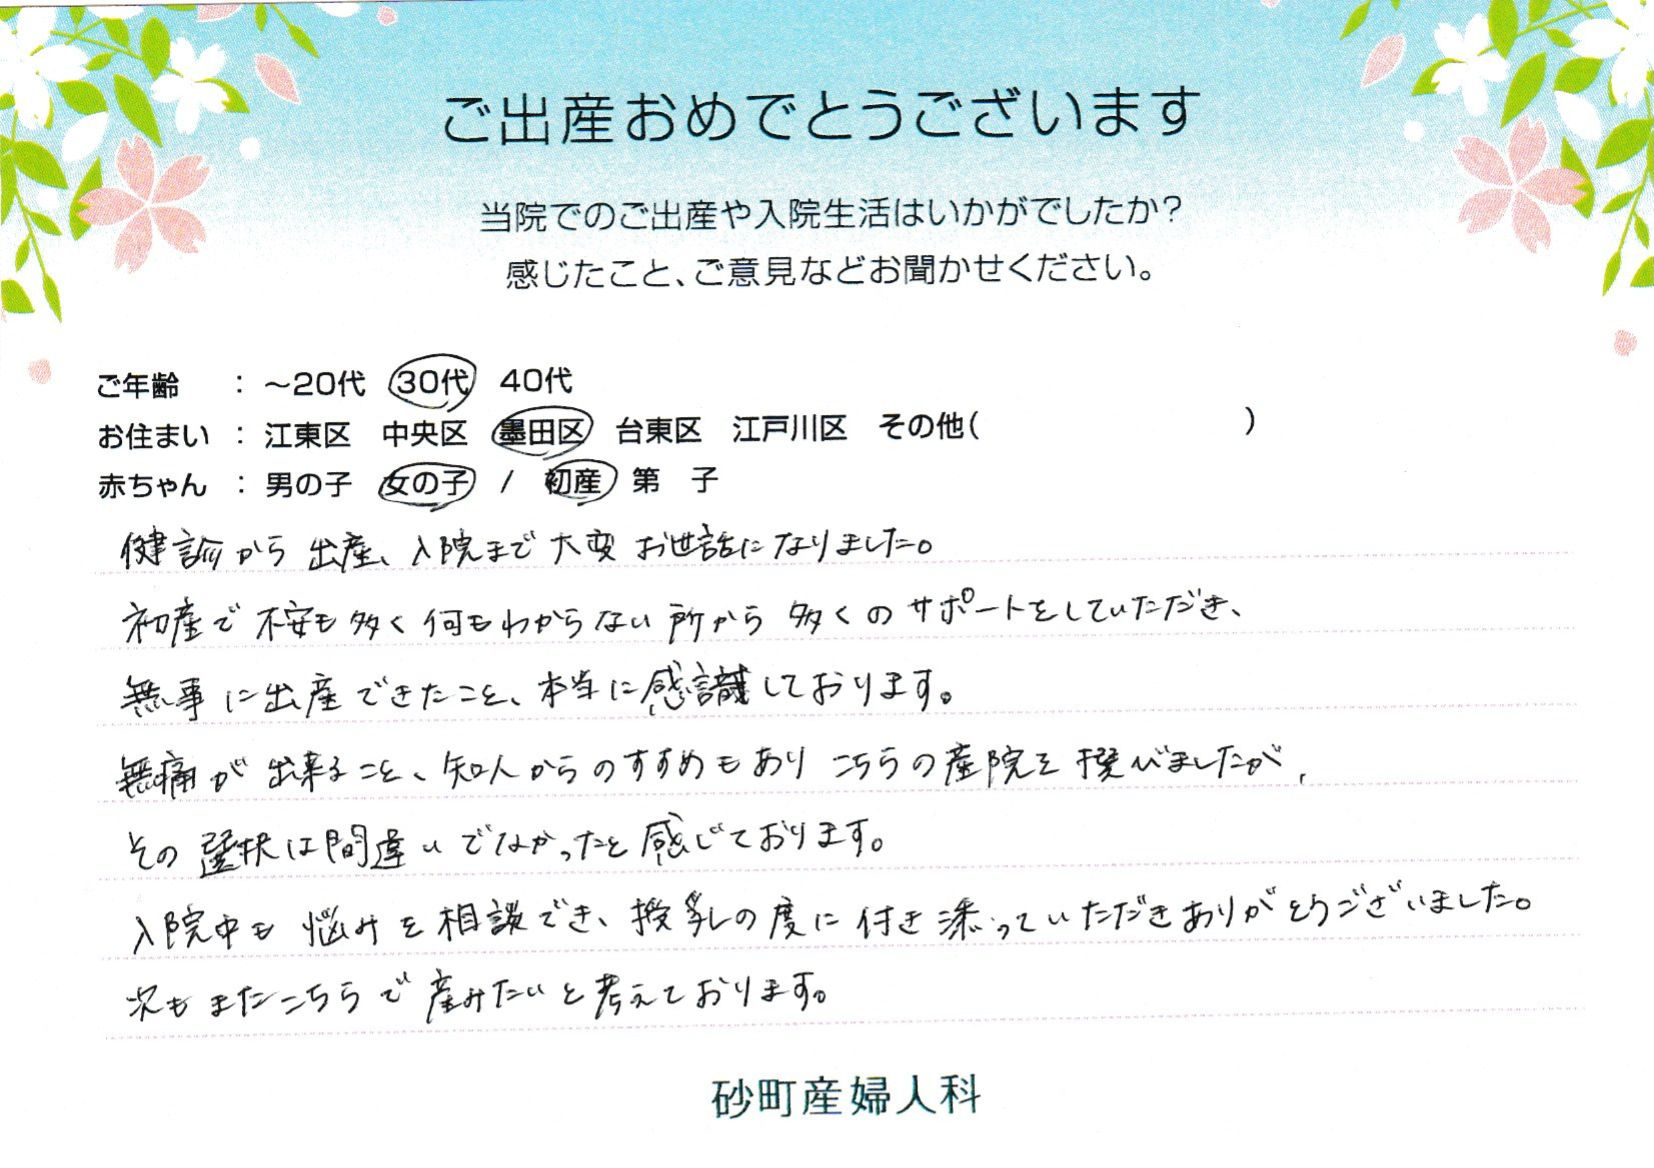 ご出産おめでとうございます
当院でのご出産や入院生活はいかがでしたか?
感じたこと、ご意見などお聞かせください。
ご年齢 : ～20代 30代 40代
お住まい : 江東区 中央区 墨田区 台東区 江戸川区 その他( )
赤ちゃん : 男の子 女の子 / 初産 第 子
健診から出産、入院まで大変お世話になりました。
初産で不安も多く何もわからない所から多くのサポートをしていただき、
無事に出産できたこと、本当に感謝しております。
無痛が出来ること、知人からのすすめもありこちらの産院を選びましたが、
その選択は間違いでなかったと感じております。
入院中も悩みを相談でき、授乳の度に付き添っていただきありがとうございました。
次もまたこちらで産みたいと考えております。
砂町産婦人科